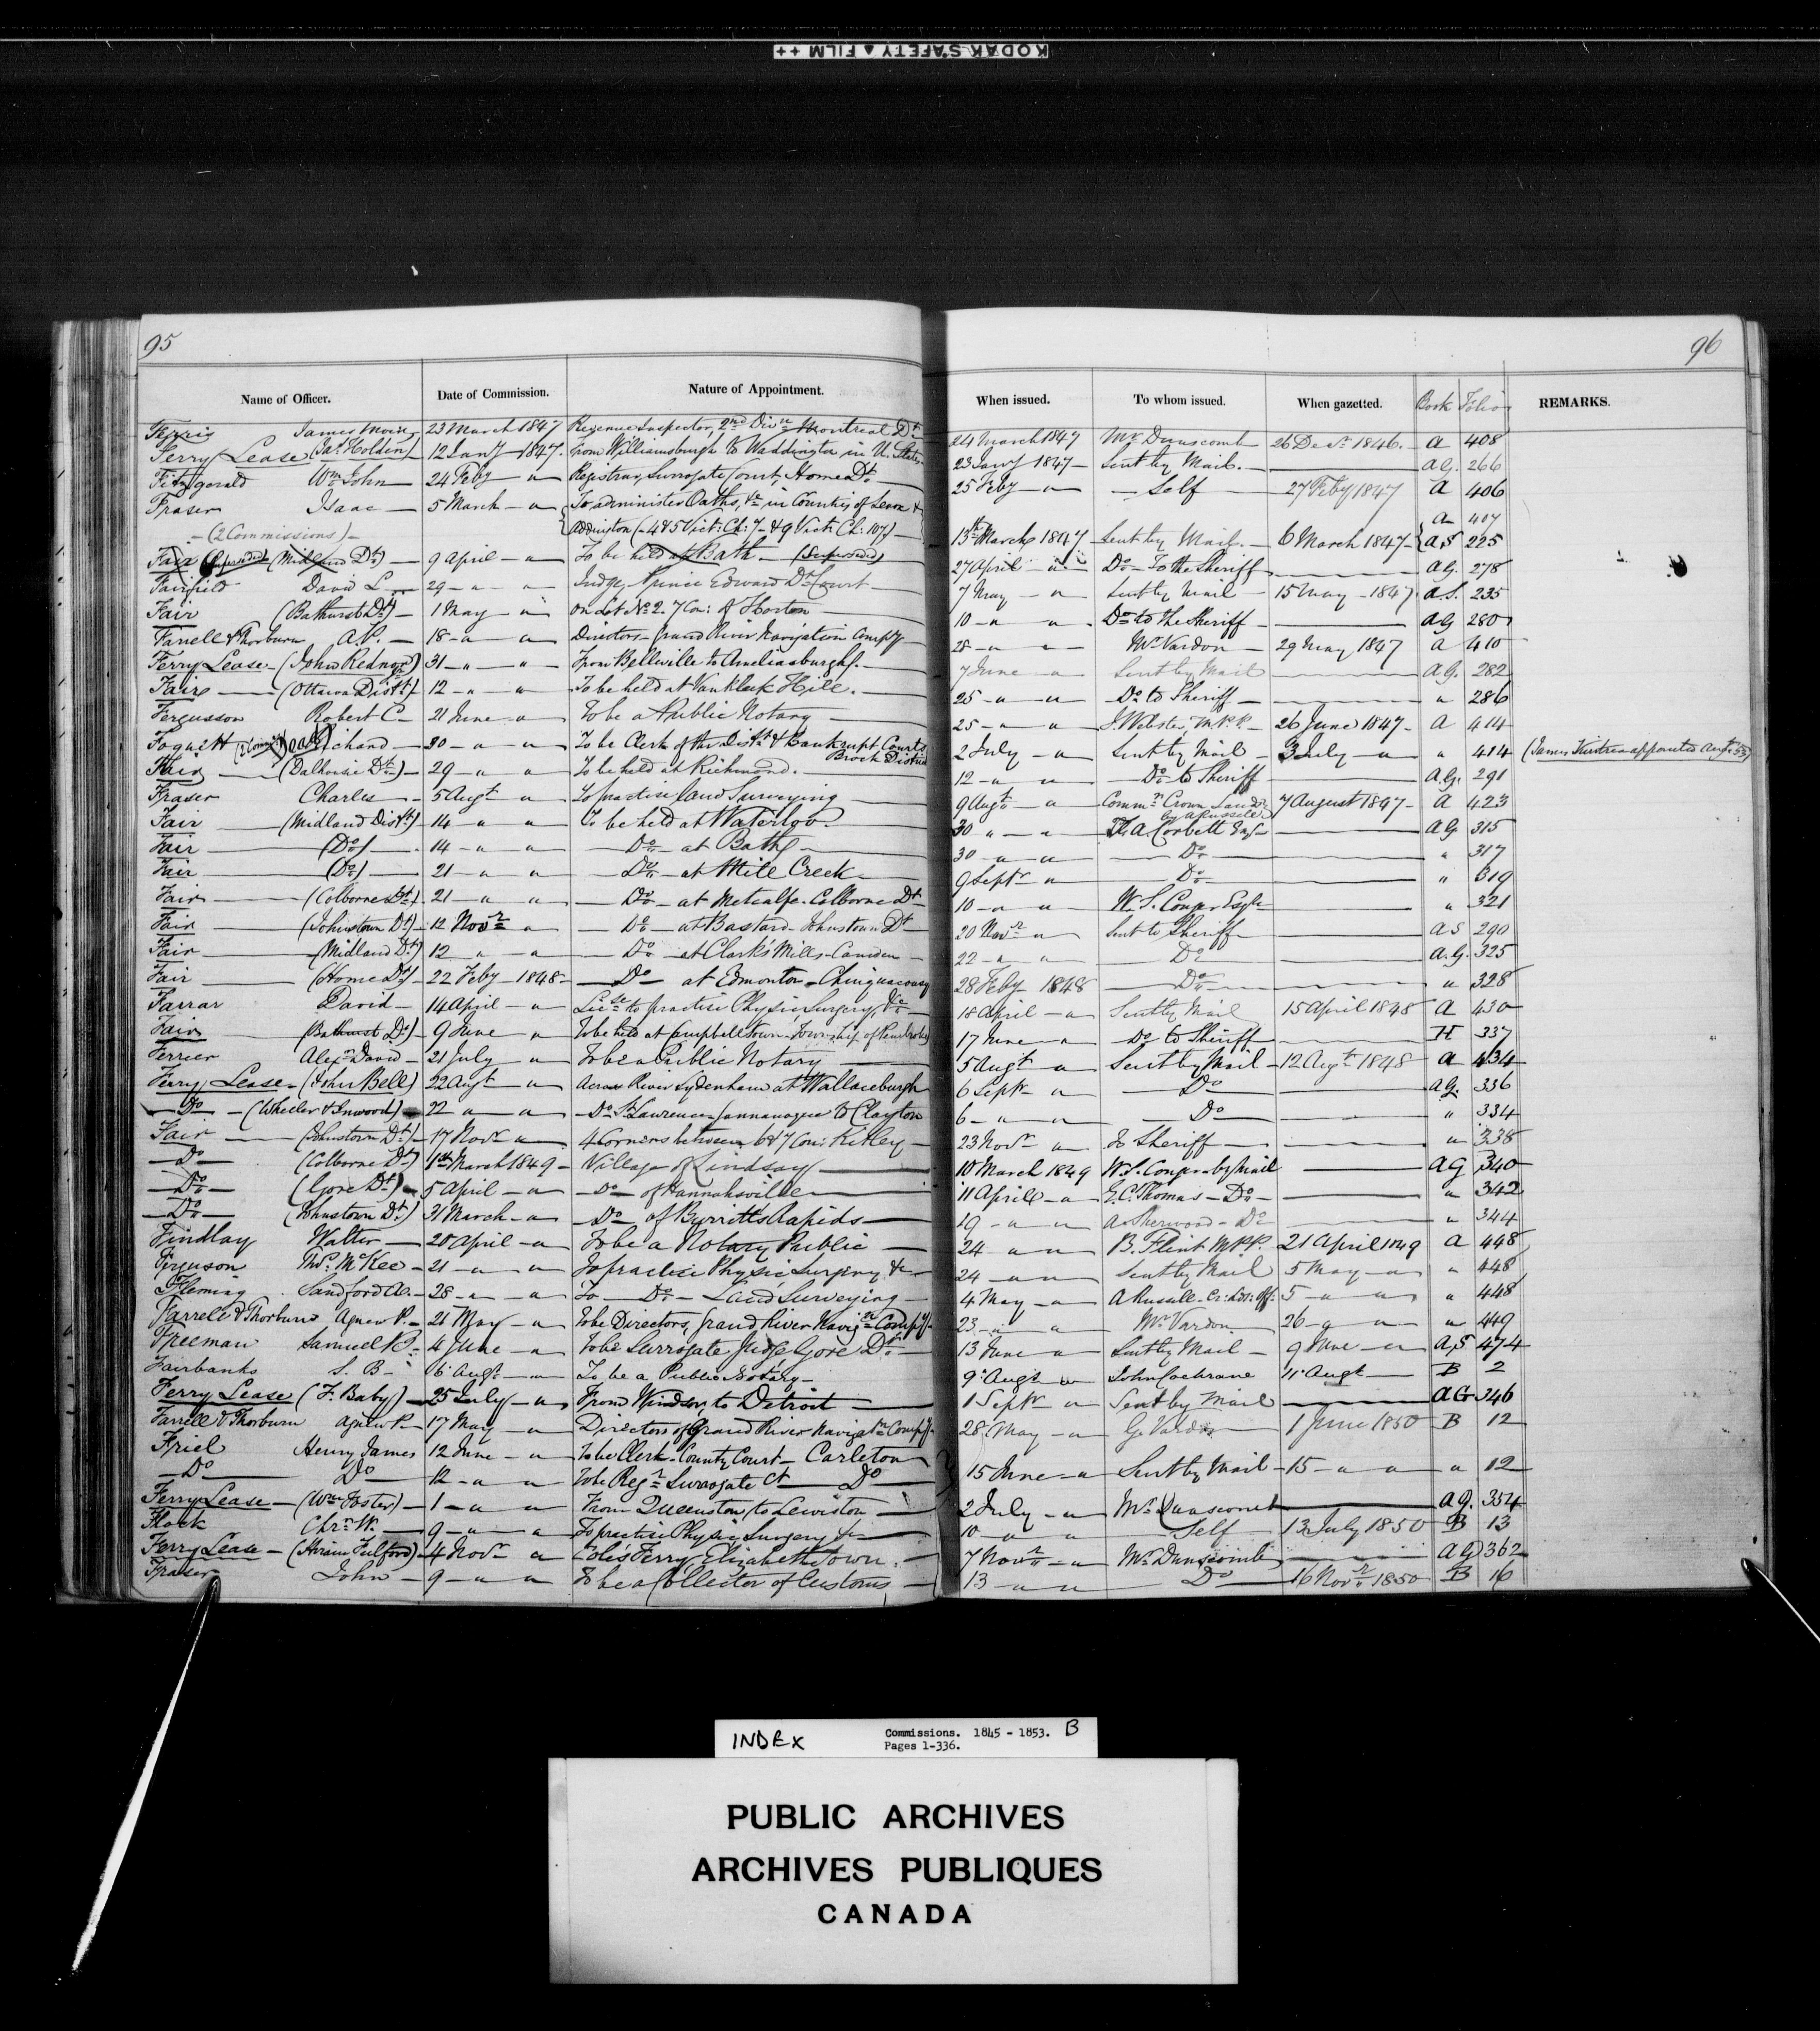 KODAK SAFETY ▲ FILM ++
95
96
Name of Officer. Date of Commission. Nature of Appointment. When issued. To whom issued. When gazetted. Book Folio REMARKS.
Ferris James Moir 23 March 1847 Revenue Inspector, 2nd Divn Montreal Dt 24 March 1847 Mr Dunscomb 26 Decr 1846 A 408
Ferry Lease (Jas Holden) 12 Jany 1847 From Williamsburgh to Waddington in U. States 23 Jany 1847 Sent by Mail AG. 266
Fitzgerald Wm John 24 Feby " Registrar, Surrogate Court, Home Dt 25 Feby " Self 27 Feby 1847 A 406
Fraser Isaac 5 March " To administer Oaths, &c in Counties of Lenox & A 407
(2 Commissions) Addington (4&5 Vict: Ch: 7 & 9 Vict: Ch: 107) 13th March 1847 Sent by Mail 6 March 1847 AS 225
Fair (Superseded) (Midland Dt) 9 April " To be held at Bath (Superseded) 27 April " Do To the Sheriff AG. 278
Fairfield David L 29 " " Judge, Prince Edward Dt Court 7 May " Sent by Mail 15 May 1847 AS. 235
Fair (Bathurst Dt) 1 May " On Lot No 2. 7 Con: of Horton 10 " " Do to the Sheriff AG 280
Farrell & Thorburn A.P. 18 " " Directors Grand River Navigation Compy 28 " " Mr Vardon 29 May 1847 A 410
Ferry Lease (John Rednor) 31 " " From Belleville to Ameliasburgh 7 June " Sent by Mail AG. 282
Fair (Ottawa Distt) 12 " " To be held at Vankleek Hill. 25 " " Do to Sheriff " 286
Fergusson Robert C 21 June " To be a Public Notary 25 " " J. Webster, M.P.P. 26 June 1847 A 414
Foquett (2 Comms) Dead Richard 30 " " To be Clerk of the Distt & Bankrupt Courts Brock District 2 July " Sent by Mail 3 July " " 414 (James appointed Augt 53)
Fair (Dalhousie Dt) 29 " " To be held at Richmond. 12 " " Do to Sheriff AG. 291
Fraser Charles 5 Augt " To practise Land Surveying 9 Augt " Commr Crown Lands by A Russell 7 August 1847 A 423
Fair (Midland Distt) 14 " " To be held at Waterloo 30 " " T. A Corbett Esq AG 315
Fair (Do) 14 " " Do at Bath 30 " " Do " 317
Fair (Do) 21 " " Do at Mill Creek 9 Septr " Do " 319
Fair (Colborne Dt) 21 " " Do at Metcalfe. Colborne Dt 10 " " W. S. Conger Esqr " 321
Fair (Johnstown Dt) 12 Novr " Do at Bastard. Johnstown Dt 20 Novr " Sent to Sheriff AS 290
Fair (Midland Dt) 12 " " Do at Clark's Mills. Camden 22 " " Do A.G. 325
Fair (Home Dt) 22 Feby 1848 Do at Edmonton Chinguacousy 28 Feby 1848 Do " 328
Farrar David 14 April " Lice to practise Physic Surgery, &c 18 April " Sent by Mail 15 April 1848 A 430
Fair (Bathurst Dt) 9 June " To be held at Campbelltown Township of Pembroke 17 June " Do to Sheriff H 337
Ferrier Alexr David 21 July " To be a Public Notary 5 Augt " Sent by Mail 12 Augt 1848 A 434
Ferry Lease (John Bell) 22 Augt " Across River Sydenham at Wallaceburgh 6 Septr " Do AG. 336
Do (Wheeler & Inwood) 22 " " Do St Lawrence Gannanoque to Clayton 6 " " Do " 334
Fair (Johnstown Dt) 17 Novr " 4 Corners between 6 & 7 Con: Kitley 23 Novr " To Sheriff " 338
Do (Colborne Dt) 1st March 1849 Village of Lindsay 10 March 1849 W. S. Conger by Mail AG 340
Do (Gore Dt) 5 April " Do of Hannahsville 11 April " E.C. Thomas Do " 342
Do (Johnstown Dt) 31 March " Do of Burritts Rapids 19 " " A. Sherwood Do " 344
Findlay Walter 20 April " To be a Notary Public 24 " " B. Flint M.P.P. 21 April 1849 A 448
Ferguson Thos McKee 21 " " To practise Physic Surgery &c 24 " " Sent by Mail 5 May " " 448
Fleming Sandford A. 28 " " To Do Land Surveying 4 May " A Russell Cr: Lds: Off: 5 " " " 448
Farrell & Thorburn Agnew P. 21 May " To be Directors, Grand River Navign Compy 23 " " Mr Vardon 26 " " " 449
Freeman Samuel B 4 June " To be Surrogate Judge Gore Dt 13 June " Sent by Mail 9 June " AS 474
Fairbanks S. B 6 Augt " To be a Public Notary 9 Augt " John Cochrane 11 Augt B 2
Ferry Lease (F. Baby) 25 July " From Windsor to Detroit 1 Septr " Sent by Mail AG 346
Farrell & Thorburn Agnew P 17 May " Directors of Grand River Navigatn Compy 28 May " G. Vardon 1 June 1850 B 12
Friel Henry James 12 June " To be Clerk County Court Carleton
Do Do 12 " " To be Regr Surrogate Ct Do 15 June " Sent by Mail 15 " " " 12
Ferry Lease (Wm Foster) 1 " " From Queenston to Lewiston 2 July " Mr Dunscomb AG. 354
Flock Chr. W. 9 " " To practise Physic Surgery &c 10 " " Self 13 July 1850 B 13
Ferry Lease (Hiram Fulford) 4 Novr " Cole's Ferry, Elizabethtown. 7 Novr " Mr Dunscomb AG 362
Fraser John 9 " " To be a Collector of Customs 13 " " Do 16 Novr 1850 B 16
INDEX Commissions. 1845 - 1853. B
Pages 1-336.
PUBLIC ARCHIVES
ARCHIVES PUBLIQUES
CANADA